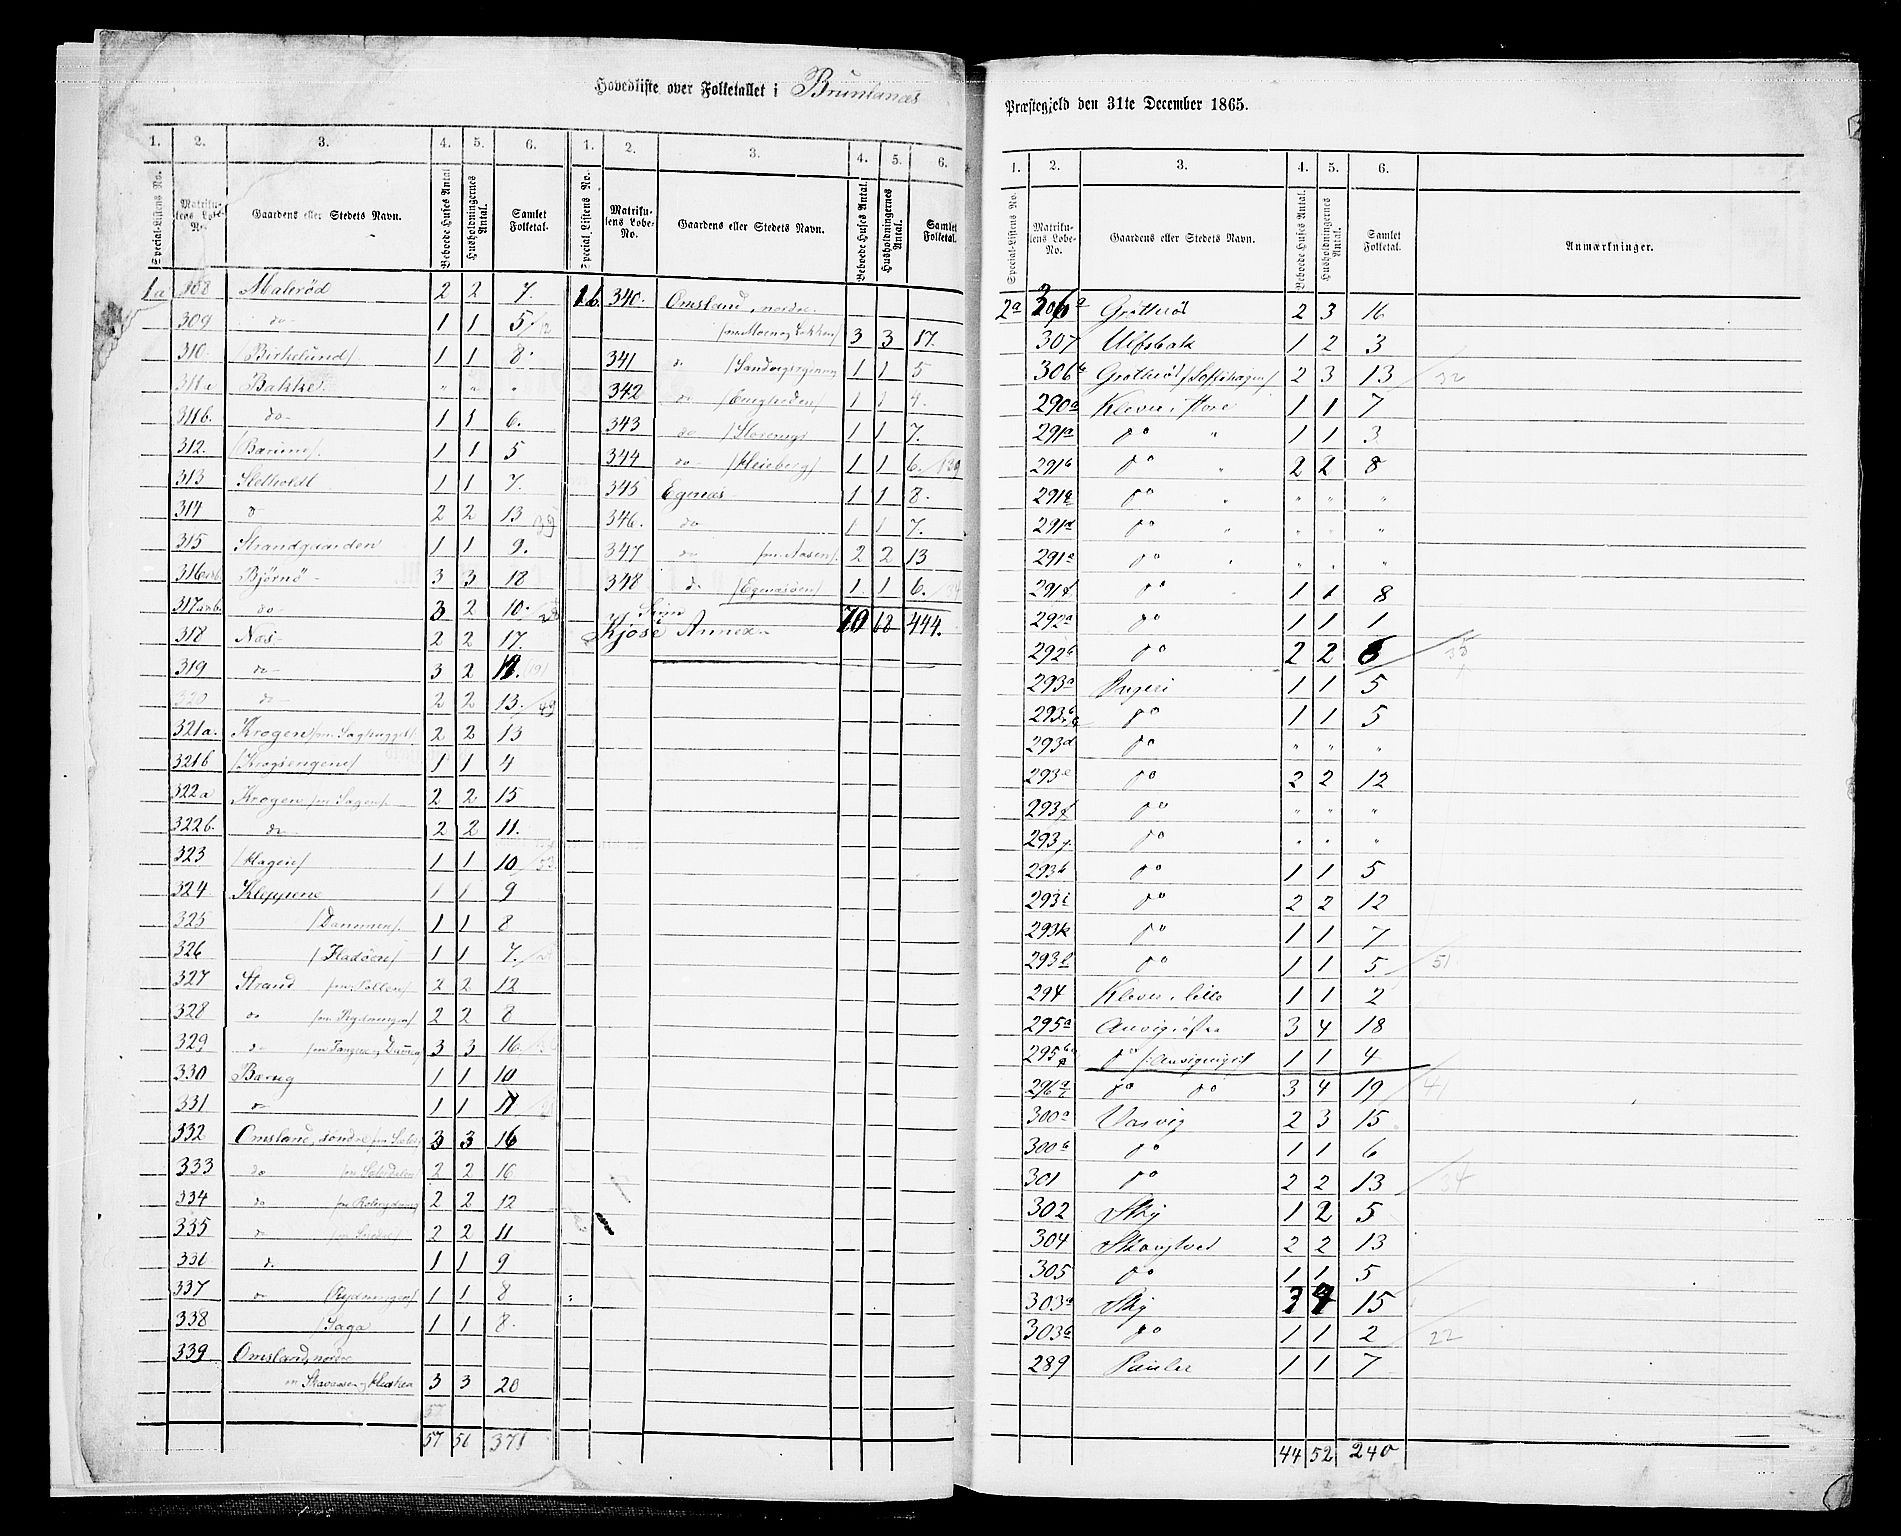 Hovedliste over Folketallet i Brunlanæs
1. 2. 3. 4. 5. 6. 1. 2. 3. 4. 5. 6.
Special-Listens No. Matrikulens Løbe-No. Gaardens eller Stedets Navn. Beboede Huses Antal Husholdningernes Antal. Samlet Folketal. Special-Listens No. Matrikulens Løbe-No. Gaardens eller Stedets Navn. Beboede Huses Antal. Husholdningernes Antal. Samlet Folketal.
1a 308 Malerød 2 2 7.
309 do 1 1 5/12
310 /Birkelund/ 1 1 8.
311a Bakke " " "
311b. do 1 1 6.
312. /Bærum/ 1 1 5
313 Sletholdt 1 1 7.
314 do 2 2 13 39
315 Strandgaarden 1 1 9.
316a&b Bjørnø 3 3 18
317a&b. do 3 2 10./28
318 Næs 2 2 17.
319 do 3 2
320 do 2 2 13./49
321a. Krogen 2 2 13
321b /Krogsengene/ 1 1 4
322a Krogen /m Sagen/ 2 2 15
322b. do 2 2 11.
323 /Hagen/ 1 1 10/53
324 Kleppene 1 1 9
325 /Dammen/. 1 1 8
326 /Fladøen/ 1 1 7.
327 Strand 2 2 12
328 do /m Rydningen/ 2 2 8
329 do 3 3 16.
330 Bærug 1 1 10
331 do 1 1 11
332 Omsland, søndre 3 3 16
333 do 2 2 16
334 do 2 2 12
335 do 2 2 11
336 do 1 1 9
337 do /Rydningen/ 1 1 8
338 /Saga 1 1 8.
339 Omsland, nordre
3 3 20
57
57 56 371
1b. 340. Omsland, nordre
3 3 17.
341 do 1 1 5
342 do /Engheden/ 1 1 4.
343 do /Storeng/ 1 1 7.
344 do /Heieberg/ 1 1 6./39
345 Egenæs 1 1 8.
346. do 1 1 7.
347 do /m Aasen/. 2 2 13
348 do /Egenæsøen/ 1 1 6./34
Kjose Annex. 70 68 444.
Præstegjeld den 31te December 1865.
1. 2. 3. 4. 5. 6.
Special-Listens No. Matrikulens Løbe-No. Gaardens eller Stedets Navn. Beboede Huses Antal. Husholdningernes Antal. Samlet Folketal. Anmærkninger.
2a 306a 2 3 16
307 Ulfsbak 1 2 3
306b 2 3 13 / 32
290a Klever, store 1 1 7
291a do " 1 1 3
291b do " 2 2 8
291c do " " " "
291d do " " " "
291e do " " " "
291f do 1 1 8
292a do 1 1 1
292b do 2 2 6 / 35
293a 1 1 5
293b do 1 1 5
293d do " " "
293e do 2 2 12
293f do " " "
293g do " " "
293h do 1 1 5
293i do 2 2 12
293k do 1 1 7
293l do 1 1 5 / 51
294 Klever, lille 1 1 2
295a Anvig, østre 3 4 18
295b do 1 1 4
296a do do 3 4 19 / 41
300a Vasvig 2 3 15
300b do 1 1 6
301 do 2 2 13 / 34
302 Sky 1 2 5
304 2 2 13
305 do 1 1 5
303a Sky 3 4 15
303b do 1 1 2 / 22
289 Pauler 1 1 7
44 52 240